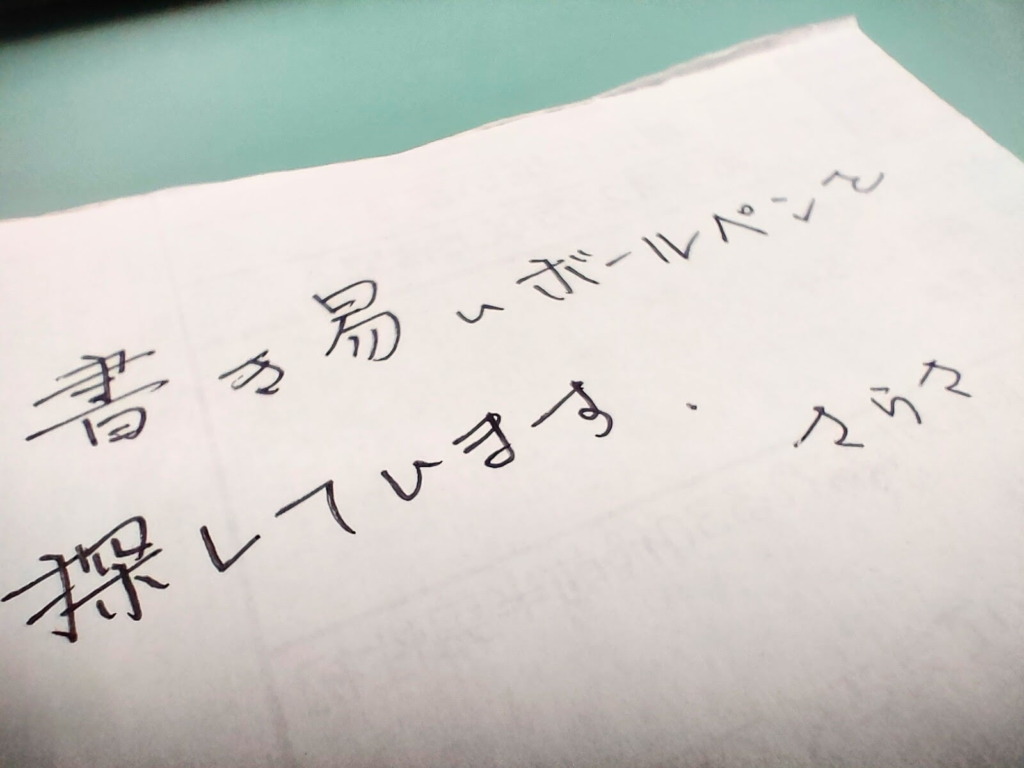 書き易いボールペンを
探しています.
さらさ